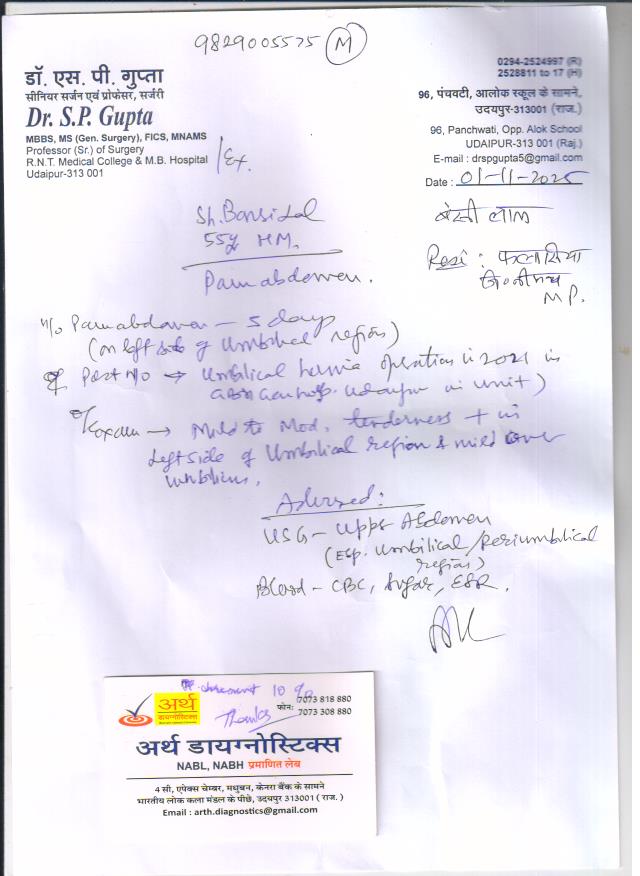 9829005575 (M)
डॉ. एस. पी. गुप्ता
सीनियर सर्जन एवं प्रोफेसर, सर्जरी
Dr. S.P. Gupta
MBBS, MS (Gen. Surgery), FICS, MNAMS
Professor (Sr.) of Surgery
R.N.T. Medical College & M.B. Hospital
Udaipur-313 001
/Ex.
0294-2524997 (R)
2528811 to 17 (H)
96, पंचवटी, आलोक स्कूल के सामने,
उदयपुर-313001 (राज.)
96, Panchwati, Opp. Alok School
UDAIPUR-313 001 (Raj.)
E-mail : drspgupta5@gmail.com
Date : 01-11-2025
Sh. Bansilal
55y HM.
Pain abdomen.
बंसी लाल
Resi : फलासिया
M P.
H/o Pain abdomen - 5 days
(on left side of Umbilical region)
Past H/o → Umbilical hernia operation in 2021 in
hosp. Udaipur in unit)
→ Mild to Mod. tenderness + in
Left side of Umbilical region & mild over
umbilicus.
Advised :
USG - Upper Abdomen
(Esp. Umbilical/Periumbilical
region)
Blood - CBC, Sugar, ESR.
discount 10 %
Thanks
अर्थ
डायग्नोस्टिक्स
फोन: 7073 818 880
7073 308 880
अर्थ डायग्नोस्टिक्स
NABL, NABH प्रमाणित लेब
4 सी, एपेक्स चेम्बर, मधुबन, केनरा बैंक के सामने
भारतीय लोक कला मंडल के पीछे, उदयपुर 313001 ( राज. )
Email : arth.diagnostics@gmail.com